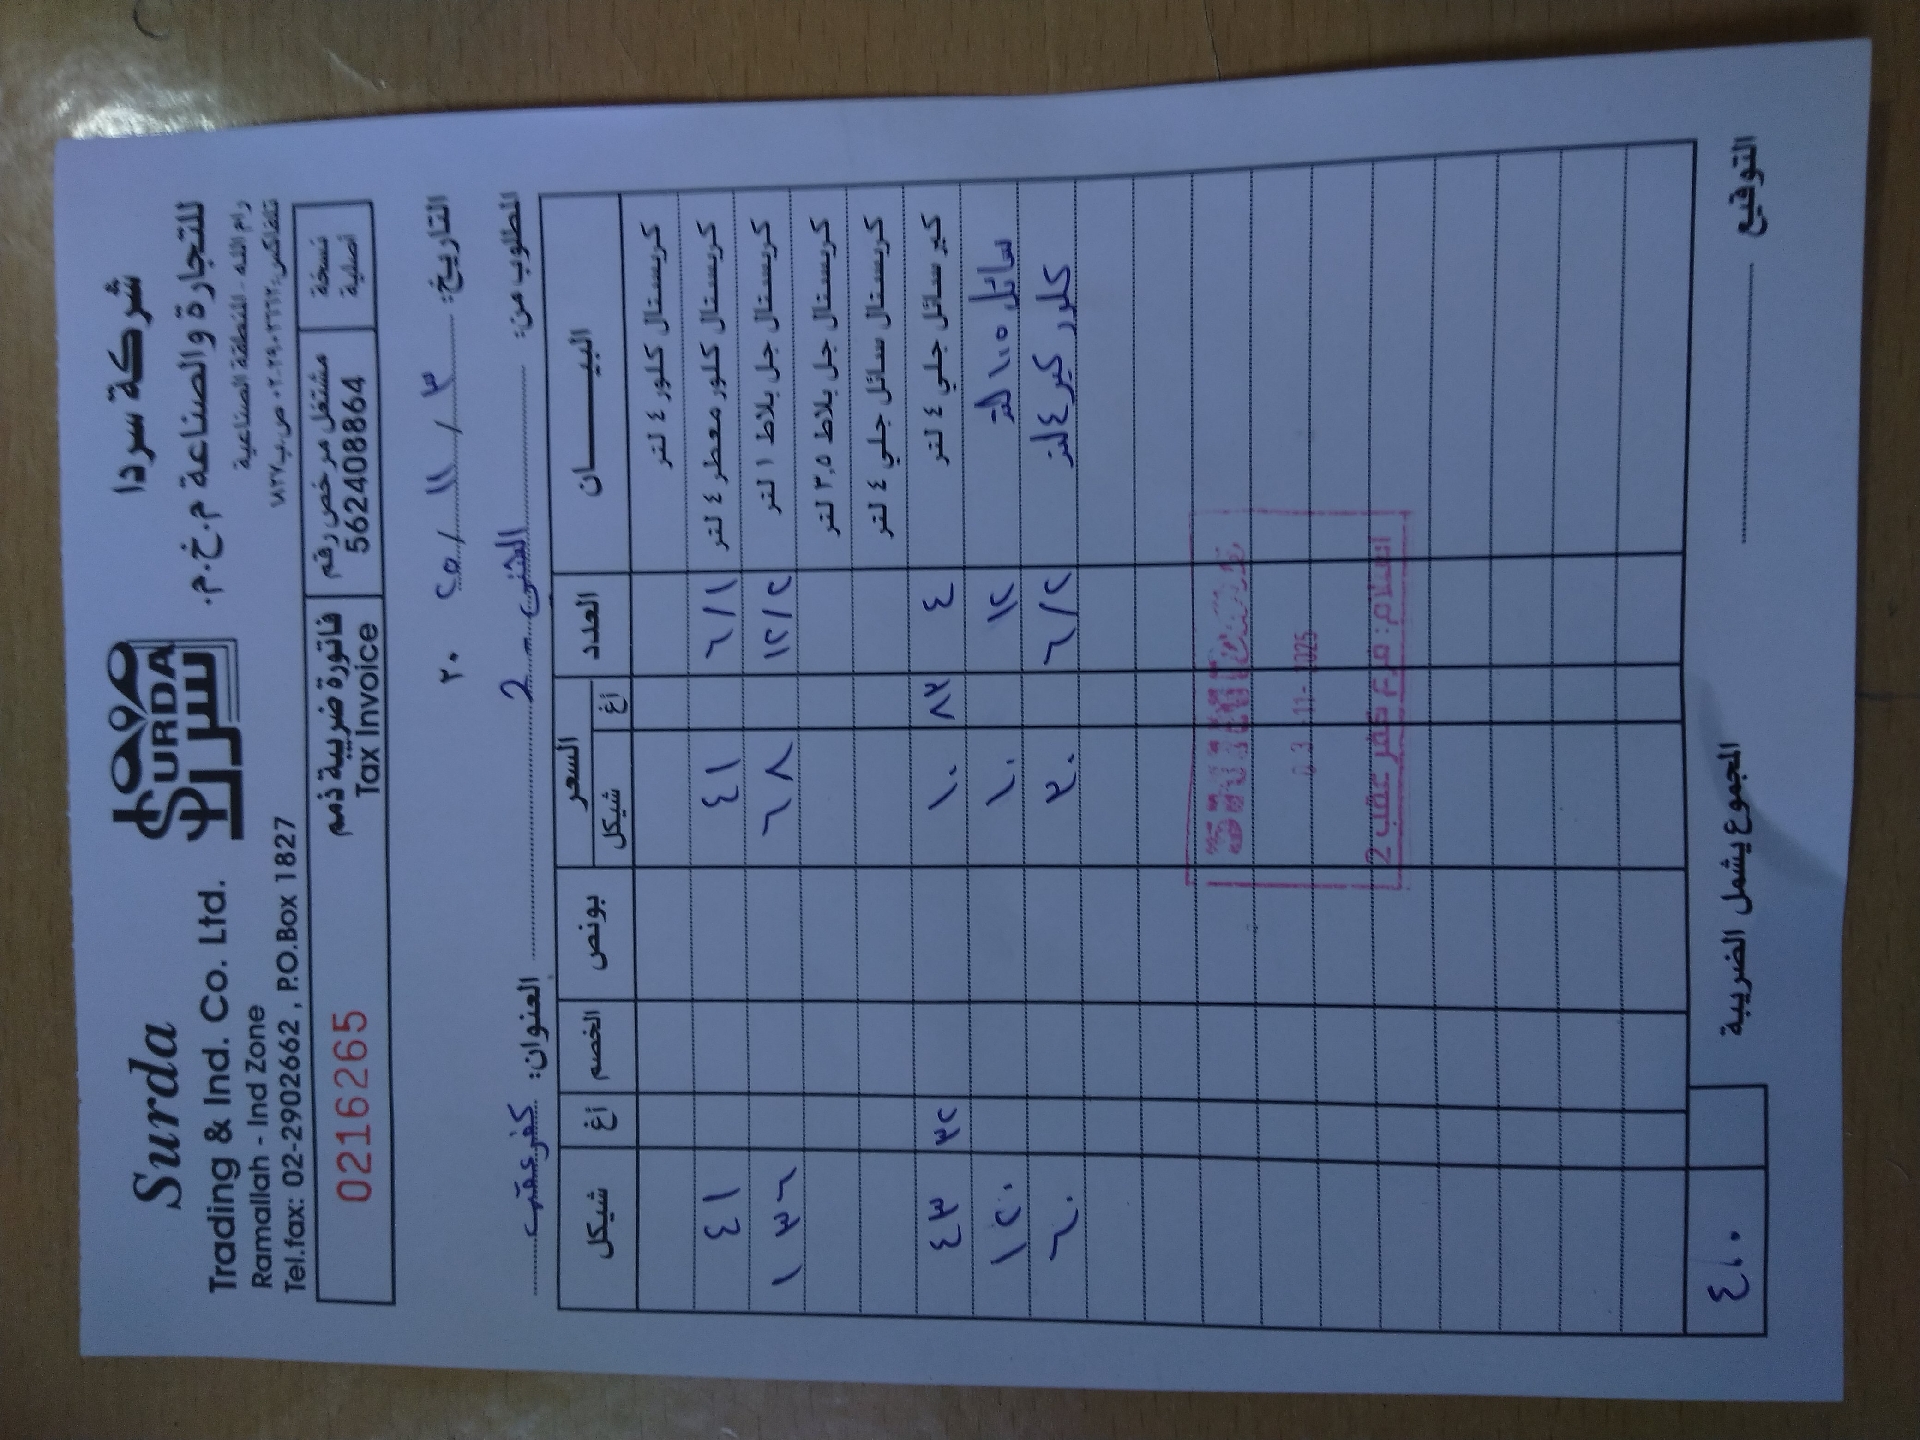 Surda
Trading & Ind. Co. Ltd.
Ramallah - Ind Zone
Tel.fax: 02-2902662 , P.O.Box 1827
SURDA
سردا
شركة سردا
للتجارة والصناعة م.خ.م.
رام الله - المنطقة الصناعية
تلفاكس: ٠٢-٢٩٠٢٦٦٢ ص.ب ١٨٢٧
0216265
فاتورة ضريبية ذمم
Tax Invoice
مشتغل مرخص رقم
562408864
نسخة
أصلية
التاريخ: ٣ / ١١ / ٢٥ ٢٠
المطلوب من: 2 العنوان: كفر عقب
البيــــــان العدد السعر بونص الخصم أغ شيكل
شيكل أغ
كريستال كلور ٤ لتر
كريستال كلور معطر ٤ لتر ٦/١ ٤١ ٤١
كريستال جل بلاط ١ لتر ١٢/٢ ٦٨ ١٣٦
كريستال جل بلاط ٣,٥ لتر
كريستال سائل جلي ٤ لتر
كير سائل جلي ٤ لتر ٤ ٨٣ ١٠ ٣٢ ٤٣
سائل ١١٥ لتر ١٢ ١٠ ١٢٠
كلور كير ٤ لتر ٦/٢ ٣٠ ٦٠
03-11-2025
السلام: فرع كفر عقب 2
المجموع يشمل الضريبة ٤١٠
التوقيع